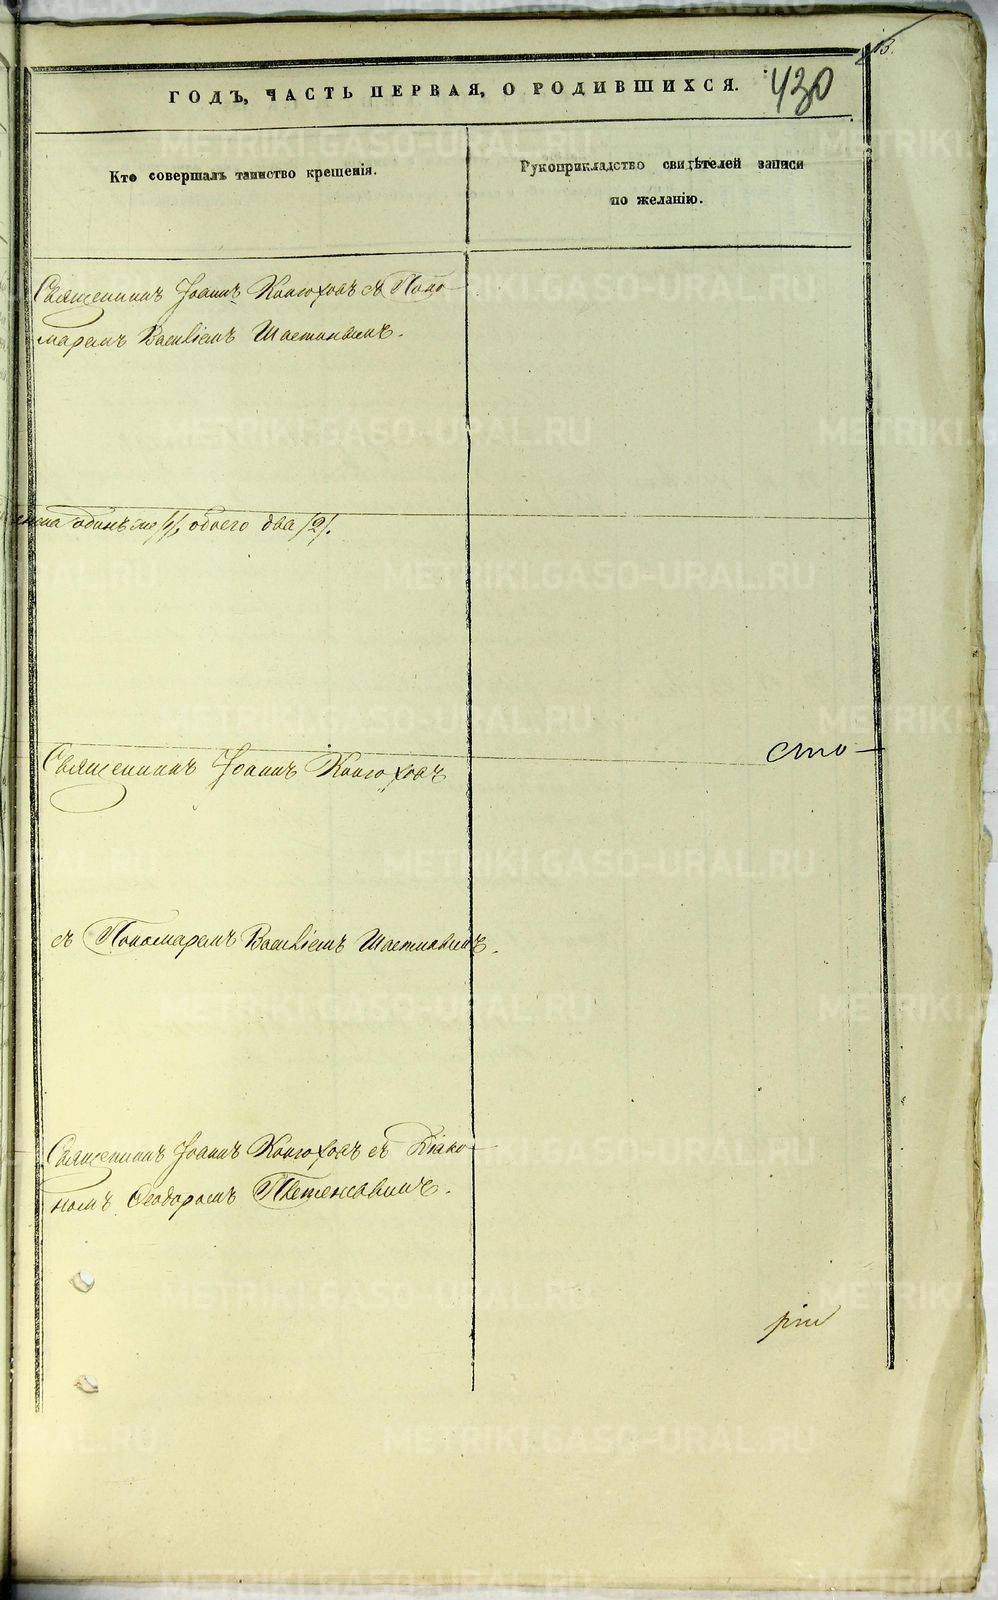 13.
430
ГОДЪ, ЧАСТЬ ПЕРВАЯ, О РОДИВШИХСЯ.
Кто совершалъ таинство крещенія.
Рукоприкладство свидѣтелей записи
по желанію.
Священникъ Іоаннъ Конюховъ съ Поно-
маремъ Василіемъ Шастинымъ.
одинъ /1/, обоего два /2/.
сто
Священникъ Іоаннъ Конюховъ
съ Пономаремъ Василіемъ Шастинымъ.
Священникъ Іоаннъ Конюховъ съ Діако-
номъ Ѳеодоромъ
METRIKI.GASO-URAL.RU